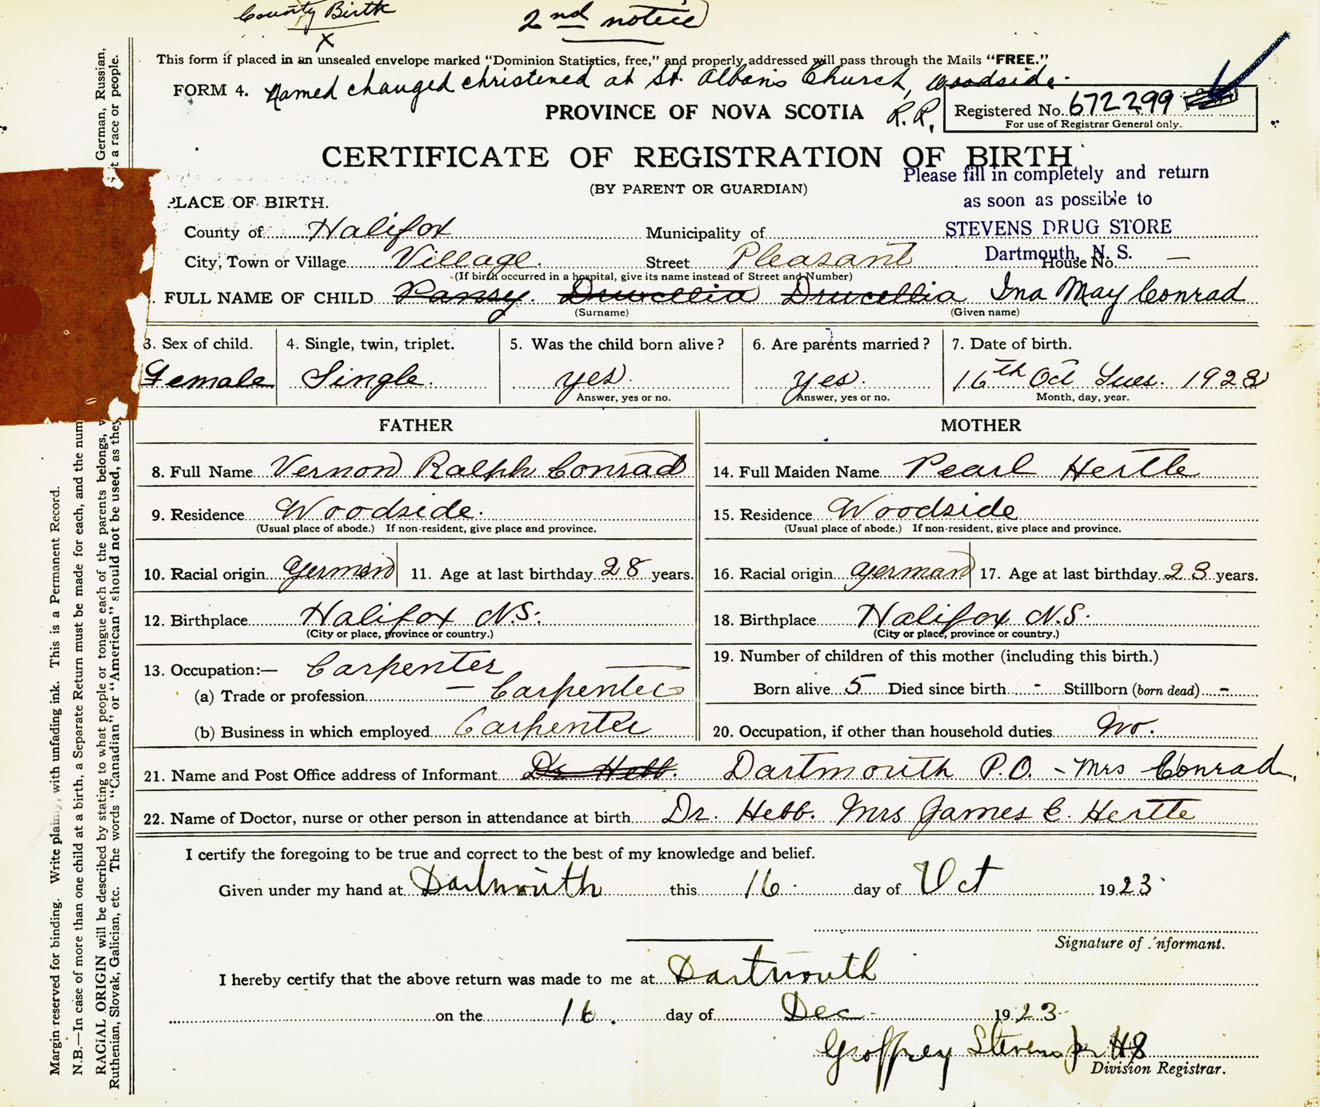 County Birth
X
2nd notice
This form if placed in an unsealed envelope marked "Dominion Statistics, free," and properly addressed will pass through the Mails "FREE."
FORM 4. Named changed christened at St. Albans Church, Woodside.
PROVINCE OF NOVA SCOTIA R.R.
Registered No. 672299
For use of Registrar General only.
CERTIFICATE OF REGISTRATION OF BIRTH
(BY PARENT OR GUARDIAN)
Please fill in completely and return
as soon as possible to
STEVENS DRUG STORE
Dartmouth, N. S.
PLACE OF BIRTH.
County of Halifax Municipality of
City, Town or Village Village. Street Pleasant House No. —
(If birth occurred in a hospital, give its name instead of Street and Number)
FULL NAME OF CHILD Pansy. Drucellia Drucellia Ina May Conrad
(Surname) (Given name)
3. Sex of child. 4. Single, twin, triplet. 5. Was the child born alive? 6. Are parents married? 7. Date of birth.
Female Single. yes. Yes. 16th Oct Tues. 1923
Answer, yes or no. Answer, yes or no. Month, day, year.
FATHER MOTHER
8. Full Name Vernon Ralph Conrad 14. Full Maiden Name Pearl Hertle
9. Residence Woodside. 15. Residence Woodside
(Usual place of abode.) If non-resident, give place and province. (Usual place of abode.) If non-resident, give place and province.
10. Racial origin German 11. Age at last birthday 28 years. 16. Racial origin German 17. Age at last birthday 23 years.
12. Birthplace Halifax N.S. 18. Birthplace Halifax N.S.
(City or place, province or country.) (City or place, province or country.)
13. Occupation:— Carpenter 19. Number of children of this mother (including this birth.)
(a) Trade or profession — Carpenter Born alive 5 Died since birth - Stillborn (born dead) -
(b) Business in which employed Carpenter 20. Occupation, if other than household duties No.
21. Name and Post Office address of Informant Dr Hebb. Dartmouth P.O. - Mrs Conrad,
22. Name of Doctor, nurse or other person in attendance at birth Dr. Hebb. Mrs James E. Hertle
I certify the foregoing to be true and correct to the best of my knowledge and belief.
Given under my hand at Dartmouth this 16 day of Oct 1923
Signature of Informant.
I hereby certify that the above return was made to me at Dartmouth
on the 16. day of Dec 1923
Geoffrey Stevens Jr
Division Registrar.
Margin reserved for binding. Write plainly, with unfading ink. This is a Permanent Record.
N.B.—In case of more than one child at a birth, a Separate Return must be made for each, and the num
RACIAL ORIGIN will be described by stating to what people or tongue each of the parents belongs, German, Russian,
Ruthenian, Slovak, Galician, etc. The words "Canadian" or "American" should not be used, as they t a race or people.